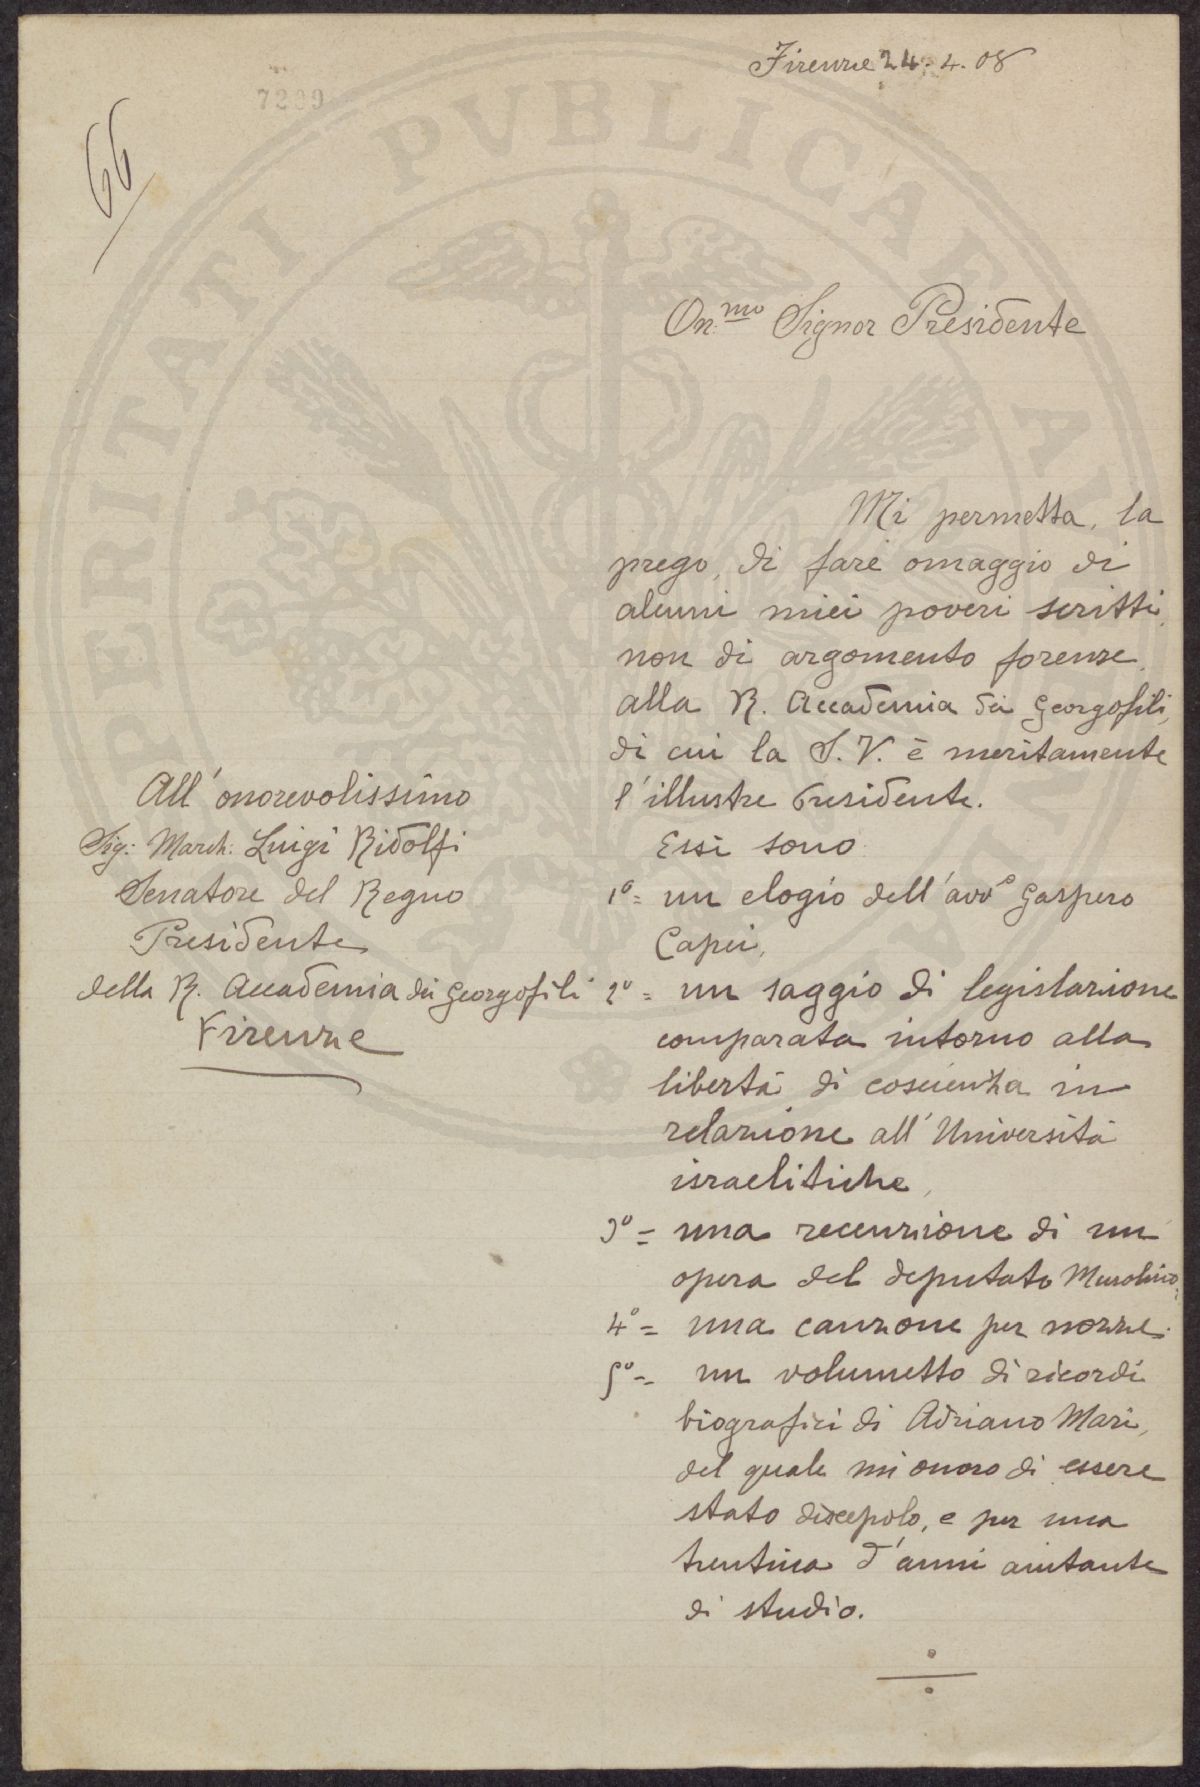 Firenze 24. 4. 08
7289
66
On.mo Signor Presidente
Mi permetta, la
prego, di fare omaggio di
alcuni miei poveri scritti,
non di argomento forense,
alla R. Accademia dei Georgofili,
di cui la S. V. è meritamente
l'illustre Presidente.
Essi sono:
1º = un elogio dell'avvº Gaspero
Capei,
2º = un saggio di legislazione
comparata intorno alla
libertà di coscienza in
relazione all'Università
israelitiche,
3º = una recenzione di un
opera del deputato Musolino;
4º = una canzone per nozze.
5º = un volumetto di ricordi
biografici di Adriano Mari,
del quale mi onoro di essere
stato discepolo, e per una
trentina d'anni aiutante
di studio.
All'onorevolissimo
Sig: March: Luigi Ridolfi
Senatore del Regno
Presidente
della R. Accademia dei Georgofili
Firenze
PROSPERITATI PVBLICAE AVGENDAE